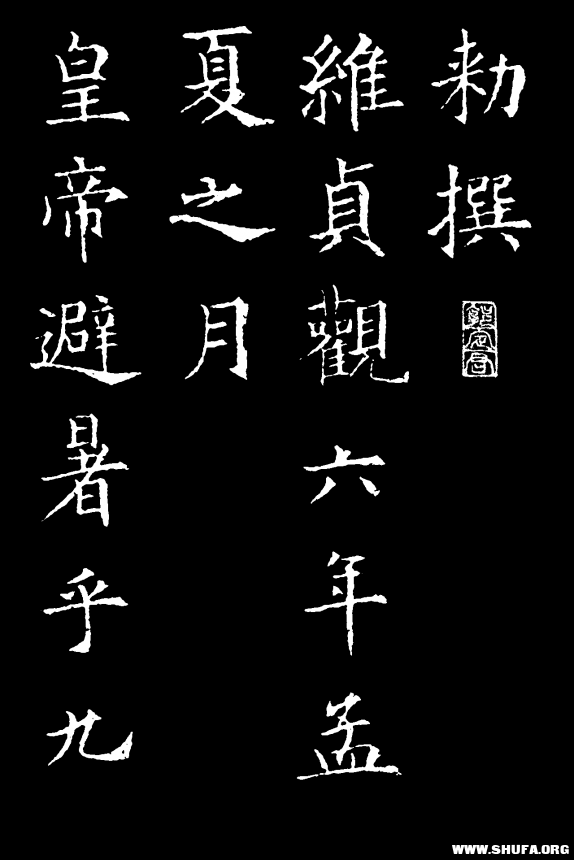 勑撰
維貞觀六年孟
夏之月
皇帝避暑乎九
WWW.SHUFA.ORG